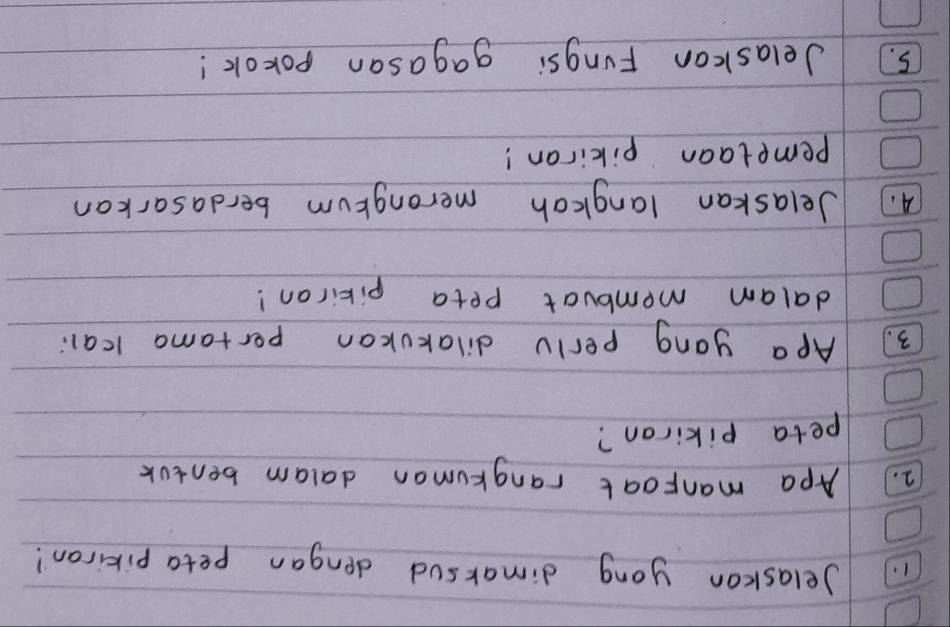 1. Jelaskan yang dimaksud dengan peta pikiran!
2. Apa manfaat rangkuman dalam bentuk
peta pikiran?
3. Apa yang perlu dilakukan pertama kali
dalam membuat peta pikiran!
4. Jelaskan langkah merangkum berdasarkan
pemetaan pikiran!
5. Jelaskan Fungsi gagasan pokok!